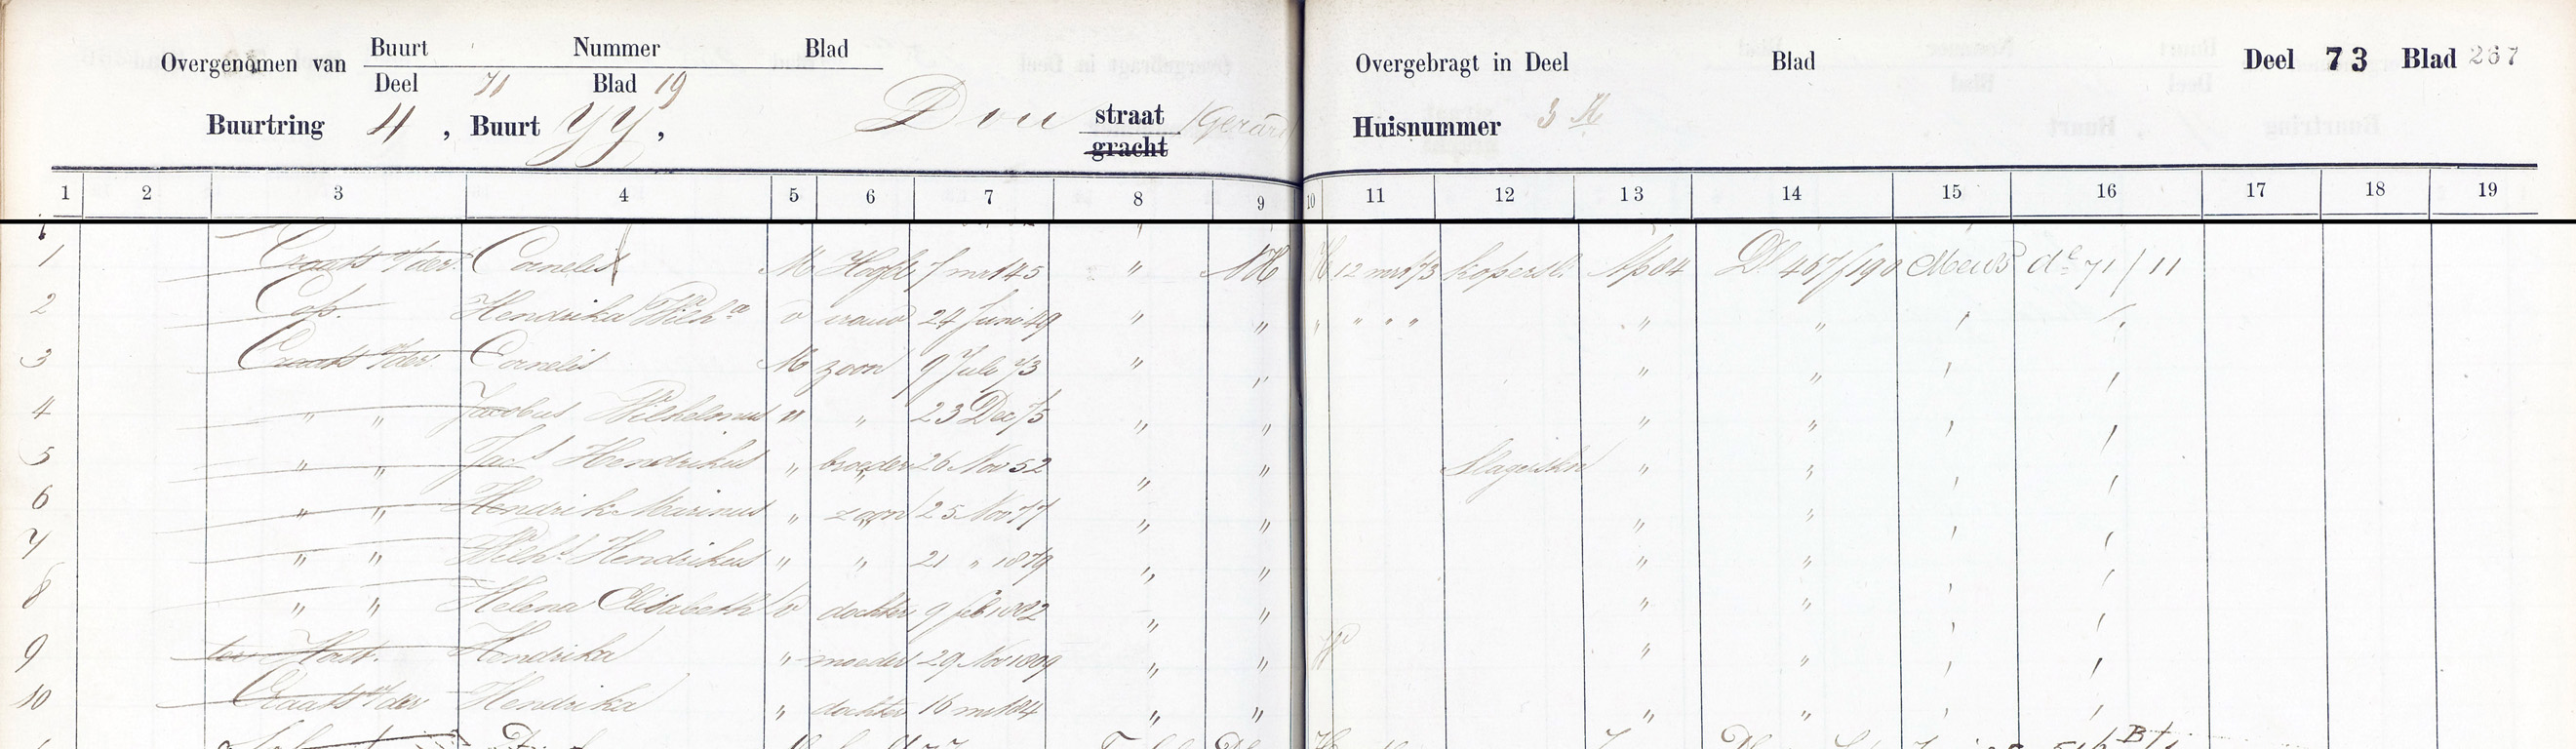 Overgenomen van Buurt Nummer Blad
Deel 71 Blad 19
Buurtring 4, Buurt YY, Dou straat /Gerard
gracht
Overgebragt in Deel Blad Deel 73 Blad 267
Huisnummer 3
1 2 3 4 5 6 7 8 9 10 11 12 13 14 15 16 17 18 19
1 Craats v/der Cornelis M Hoofd 7 mrt 45 " NH H 12 mrt 73 Kopersl. Ap 84 Dl 467/190 Meub de 71/11
2 Cop. Hendrika Wilha v vrouw 24 Juni 49 " " " " " " " "
3 Craats v/der Cornelis M zoon 9 Juli 73 " " " "
4 " " Jacobus Wilhelmus " " 23 Dec 75 " " " "
5 " " Jacs Hendrikus " broeder 26 Nov 52 " " Slagerskn " "
6 " " Hendrik Marinus " zoon 25 Nov 77 " " " "
7 " " Wilhs Hendrikus " " 21 " 1879 " " " "
8 " " Helena Elisabeth v dochter 9 feb 1882 " " " "
9 ter Horst. Hendrika " moeder 29 Nov 1809 " " W " "
10 Craats v/der Hendrika " dochter 16 mrt 84 " " " "